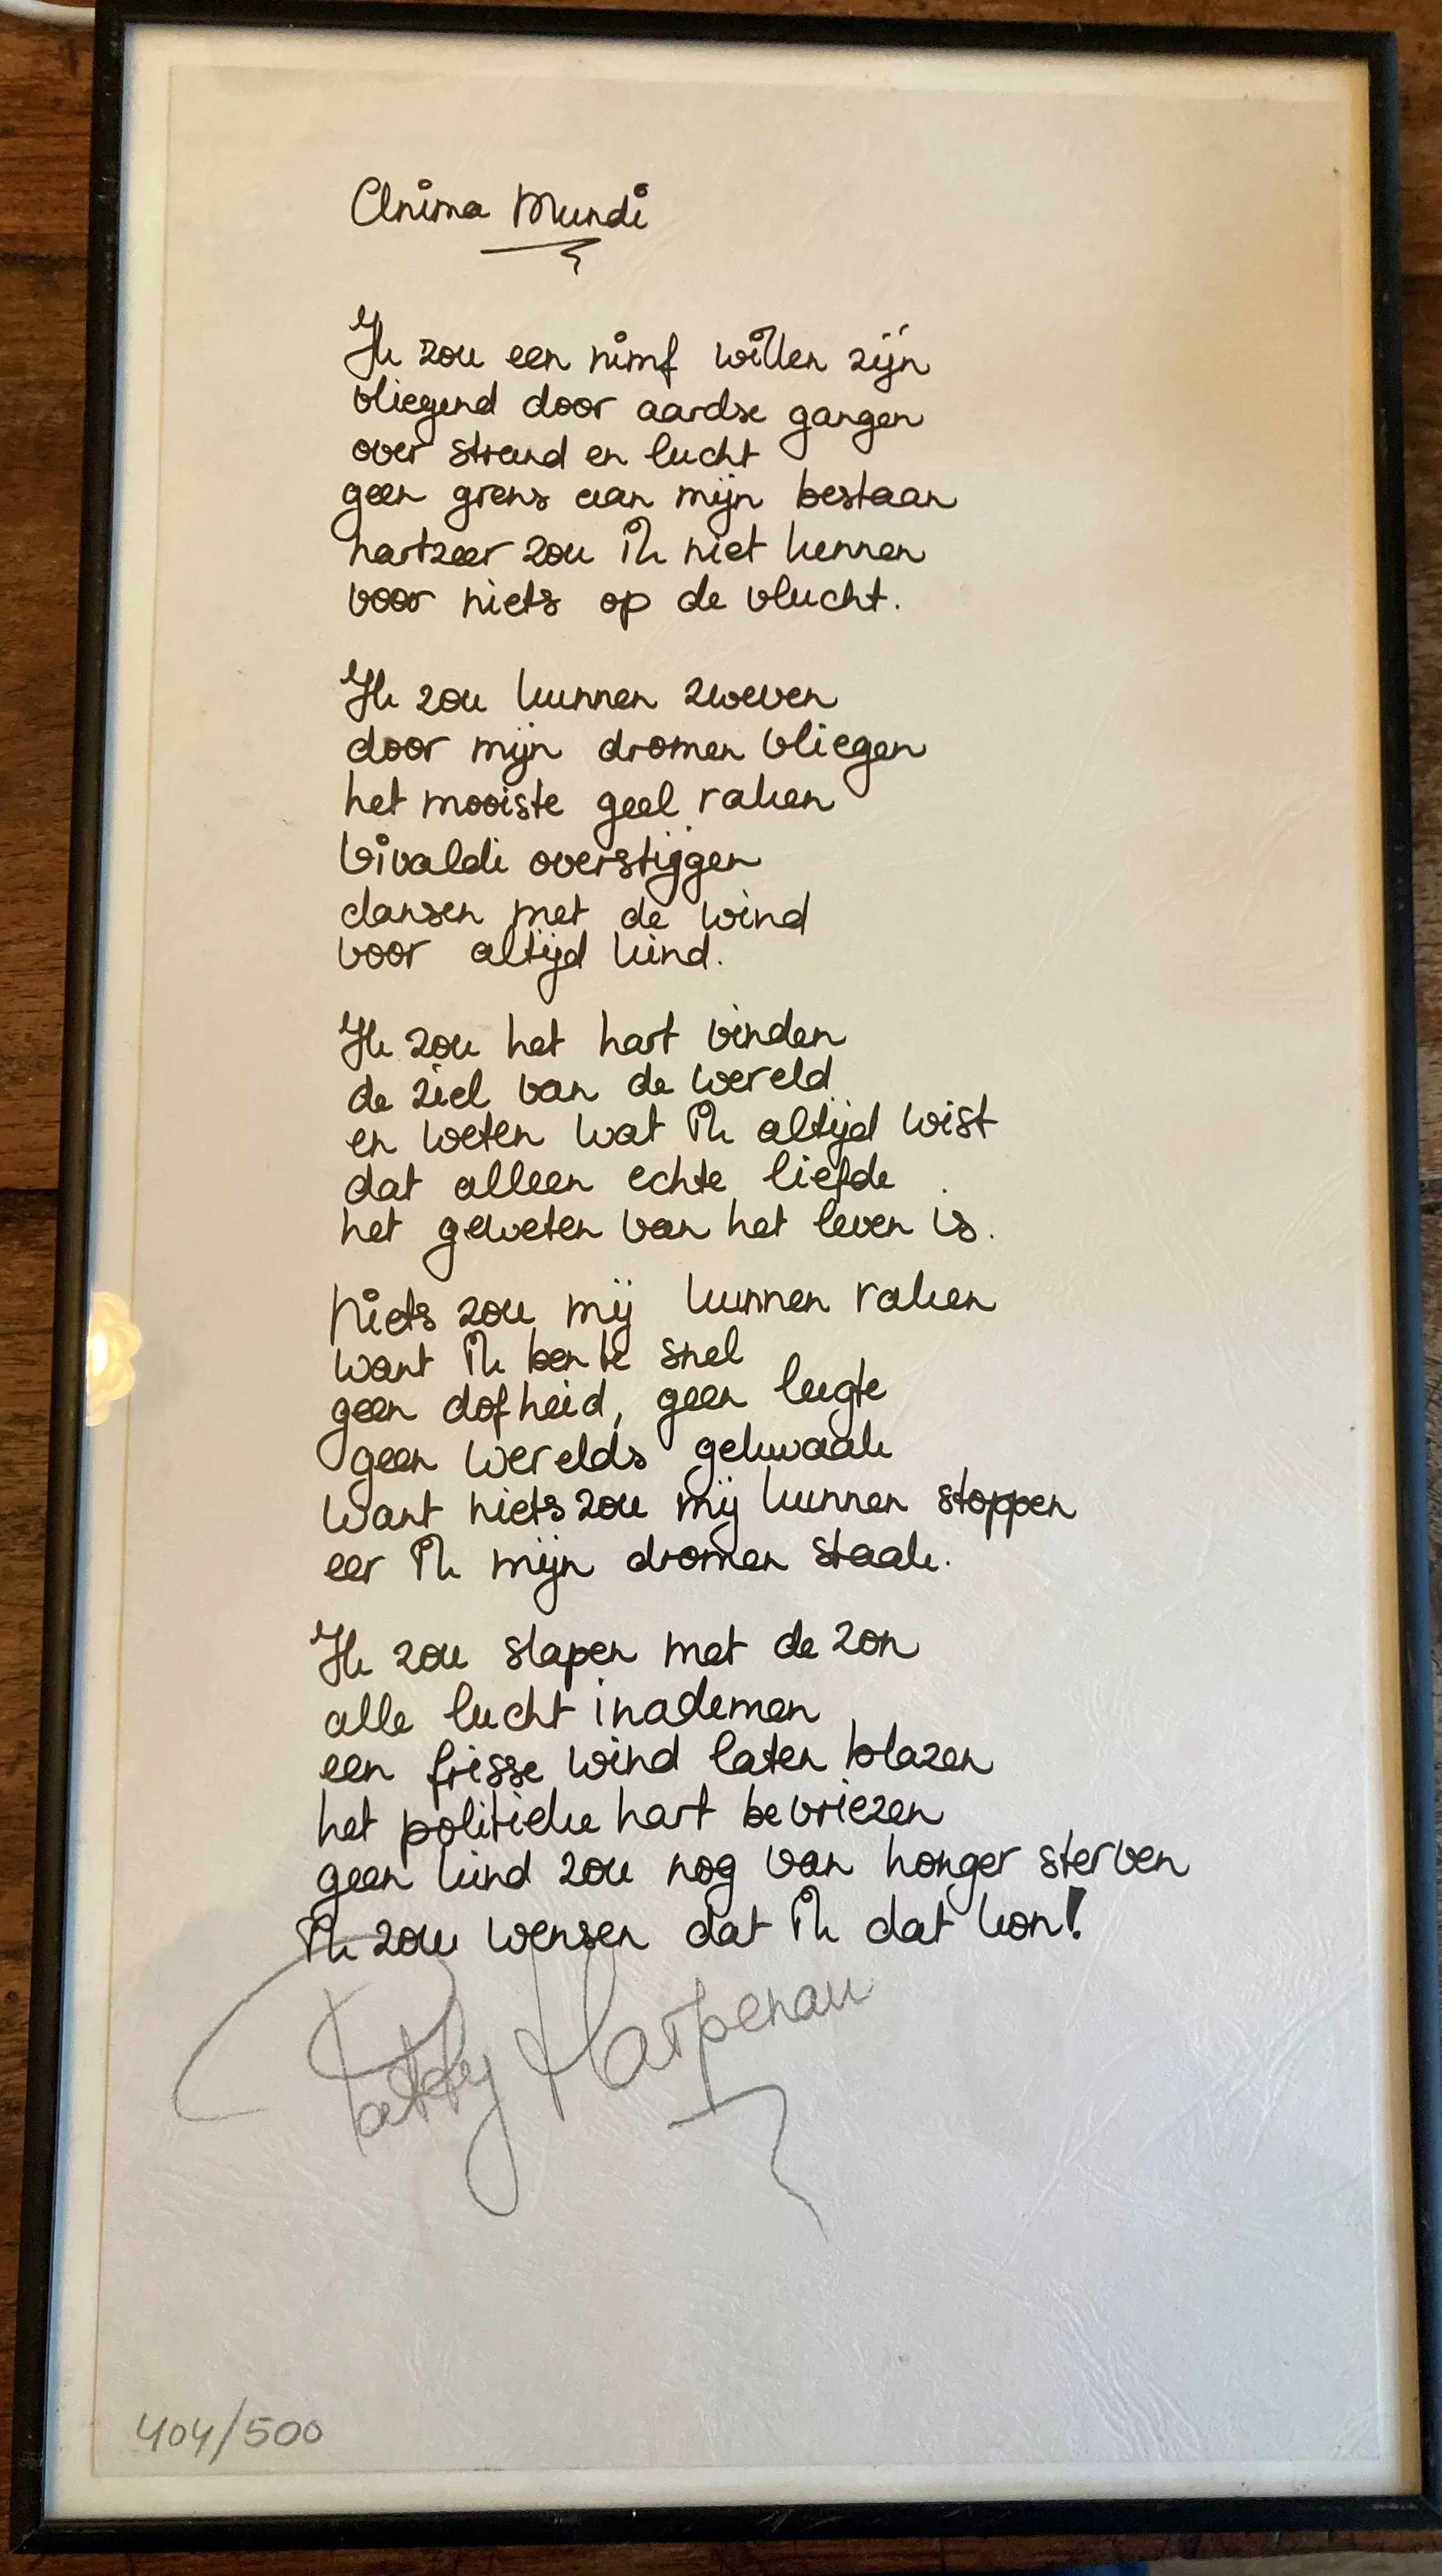 Anima Mundi
Ik zou een nimf willen zijn
vliegend door aardse gangen
over strand en lucht
geen grens aan mijn bestaan
hartzeer zou ik niet kennen
voor niets op de vlucht.
Ik zou kunnen zweven
door mijn dromen vliegen
het mooiste geel raken
Vivaldi overstijgen
dansen met de wind
voor altijd kind.
Ik zou het hart vinden
de ziel van de wereld
en weten wat ik altijd wist
dat alleen echte liefde
het geweten van het leven is.
Niets zou mij kunnen raken
want ik ben te snel
geen dofheid, geen leegte
geen werelds gekwaak
want niets zou mij kunnen stoppen
eer ik mijn dromen staak.
Ik zou slapen met de zon
alle lucht inademen
een frisse wind laten blazen
het politieke hart bevriezen
geen kind zou nog van honger sterven
ik zou wensen dat ik dat kon!
Patty Harpenau
404/500